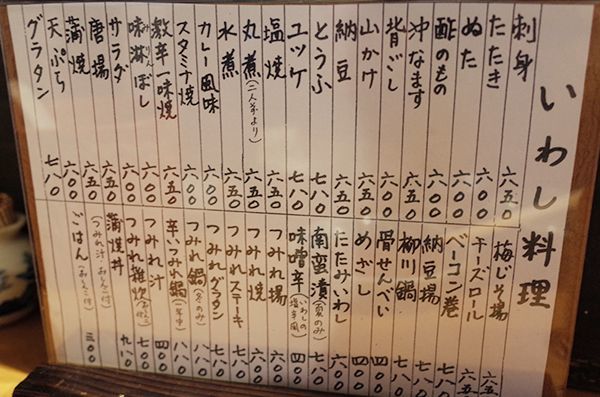 いわし料理
刺身 六五〇
たたき 六〇〇
ぬた 六〇〇
酢のもの 六〇〇
沖なます 六五〇
背ごし 六〇〇
山かけ 六〇〇
納豆 六五〇
とうふ 七八〇
ユッケ 七八〇
塩焼 六五〇
丸煮(二人前より) 六五〇
水煮 六五〇
カレー風味 六〇〇
スタミナ焼 六〇〇
激辛一味焼 六五〇
味淋ぼし 六〇〇
サラダ 六〇〇
唐揚 六五〇
蒲焼 六五〇
天ぷら 六〇〇
グラタン 七八〇
梅じそ揚 六五〇
チーズロール 六五〇
ベーコン巻 七八〇
納豆揚 七八〇
柳川鍋 七八〇
骨せんべい 四〇〇
めざし 四〇〇
たたみいわし 六〇〇
南蛮漬(夏のみ) 七八〇
味噌辛(いわしの塩辛風) 四〇〇
つみれ揚 六〇〇
つみれ焼 六〇〇
つみれステーキ 七八〇
つみれグラタン
つみれ鍋(冬のみ)
辛いつみれ鍋(年中)
つみれ汁 四〇〇
つみれ雑炊 七八〇
蒲焼丼 九八〇
(つみれ汁 おしんこ付)
ごはん(おしんこ付) 三〇〇